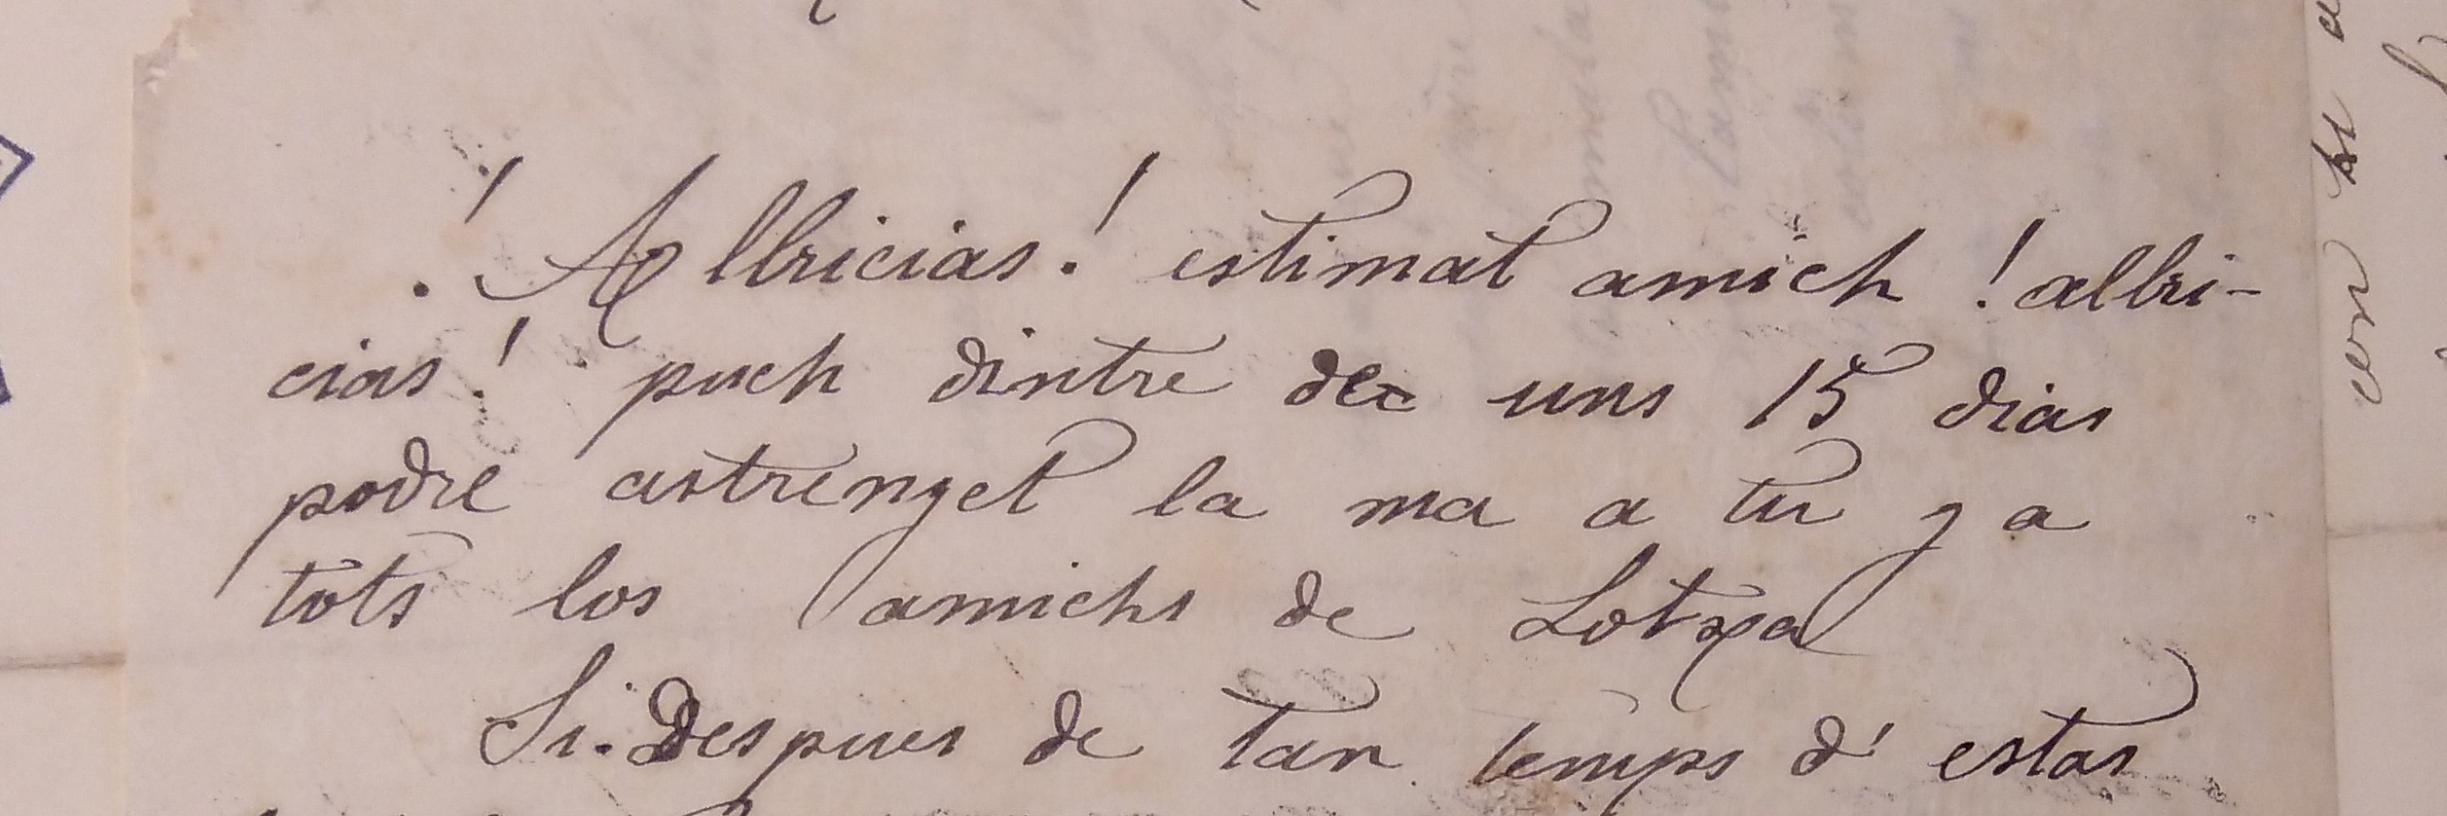 ¡Albricias! estimat amich ! albri-
cias! puch dintre de uns 15 dias
podre astrenyet la ma a tu y a
tots los amichs de Lotxa
Si. Despues de tan temps d' estas